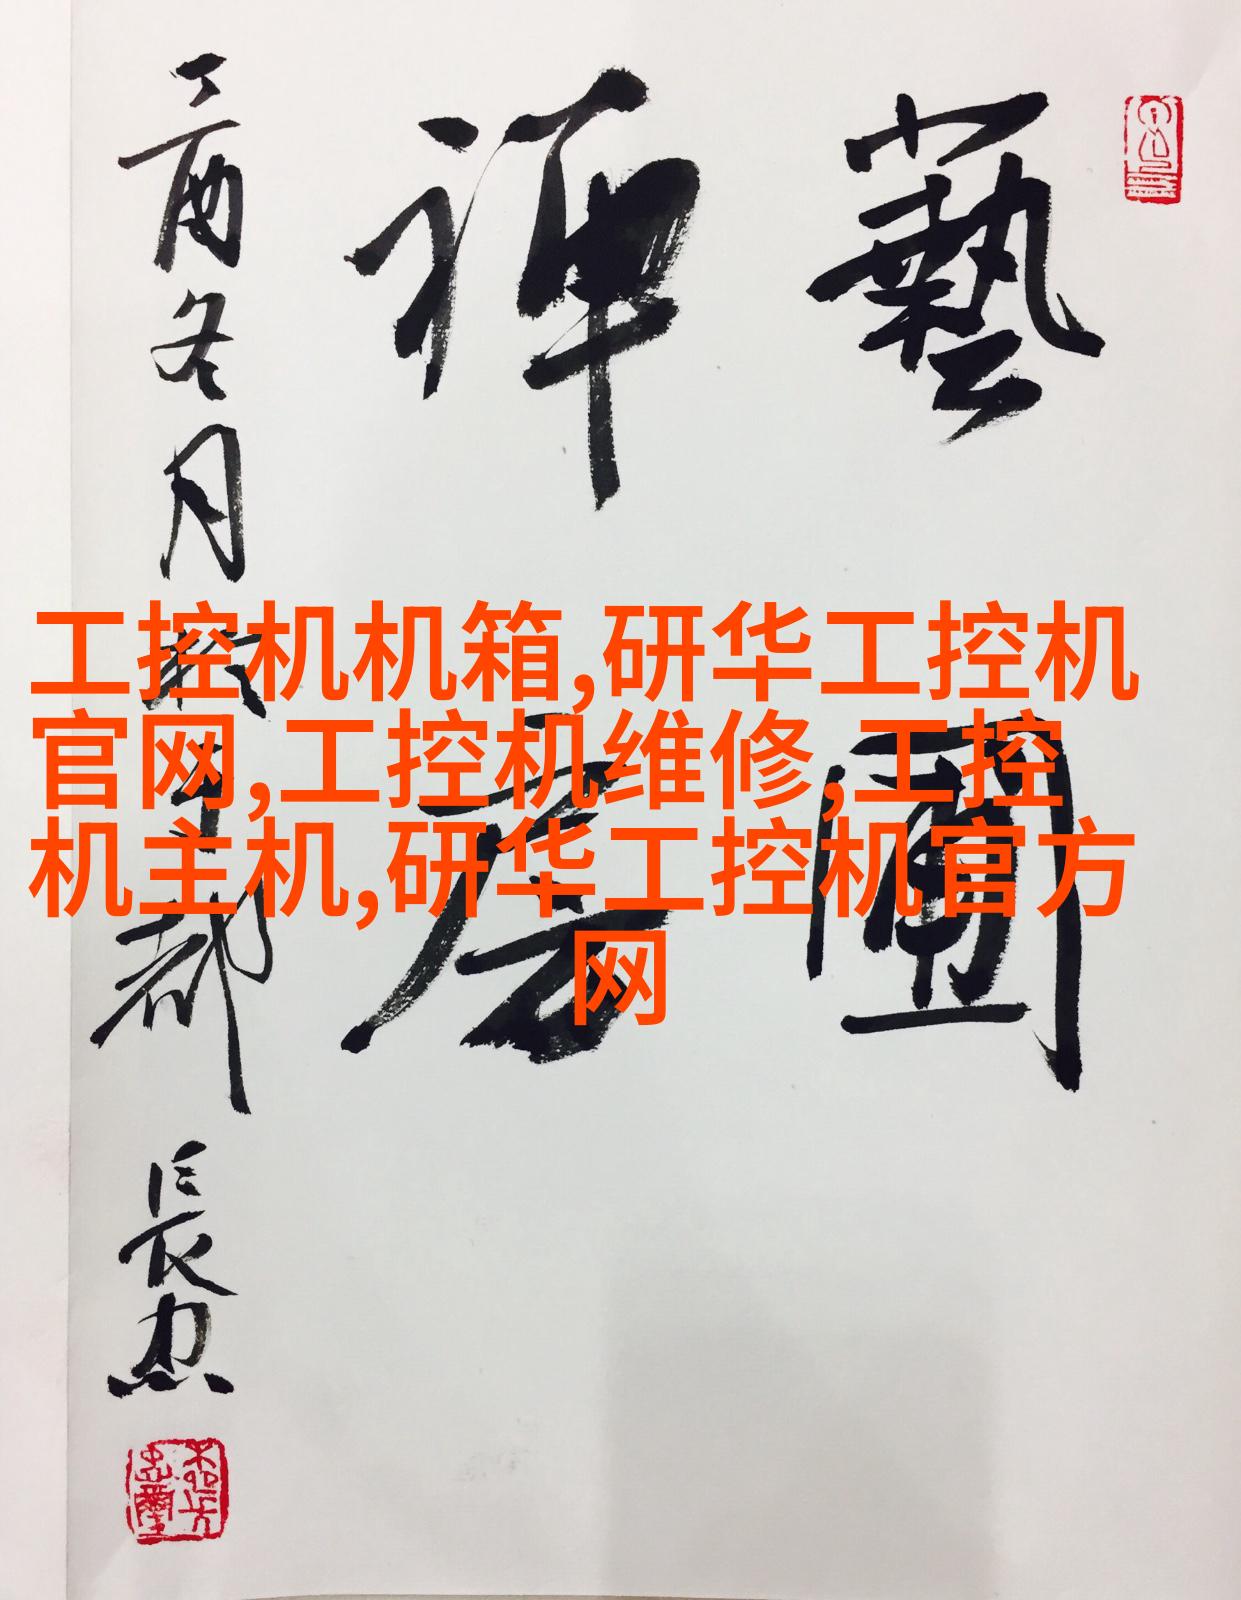 藝圃
禪房
丁酉冬月於成都
長忠
工控机机箱,研华工控机
官网,工控机维修,工控
机主机,研华工控机官方
网